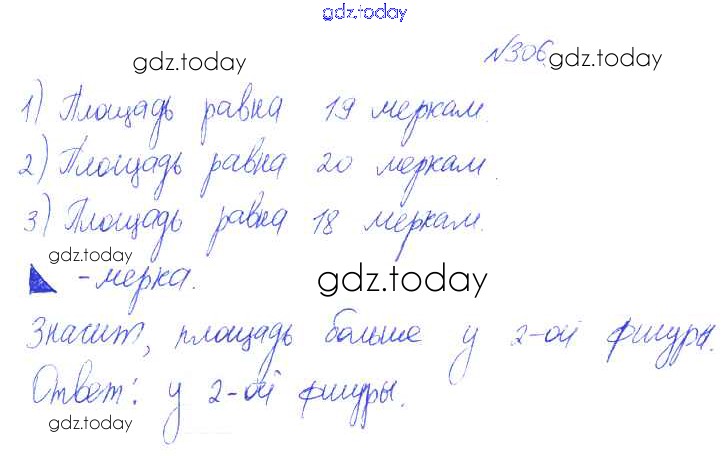 gdz.today
№306.
gdz.today gdz.today
1) Площадь равна 19 меркам.
2) Площадь равна 20 меркам.
3) Площадь равна 18 меркам.
gdz.today
- мерка.
gdz.today
Значит, площадь больше у 2-ой фигуры.
Ответ: у 2-ой фигуры.
gdz.today